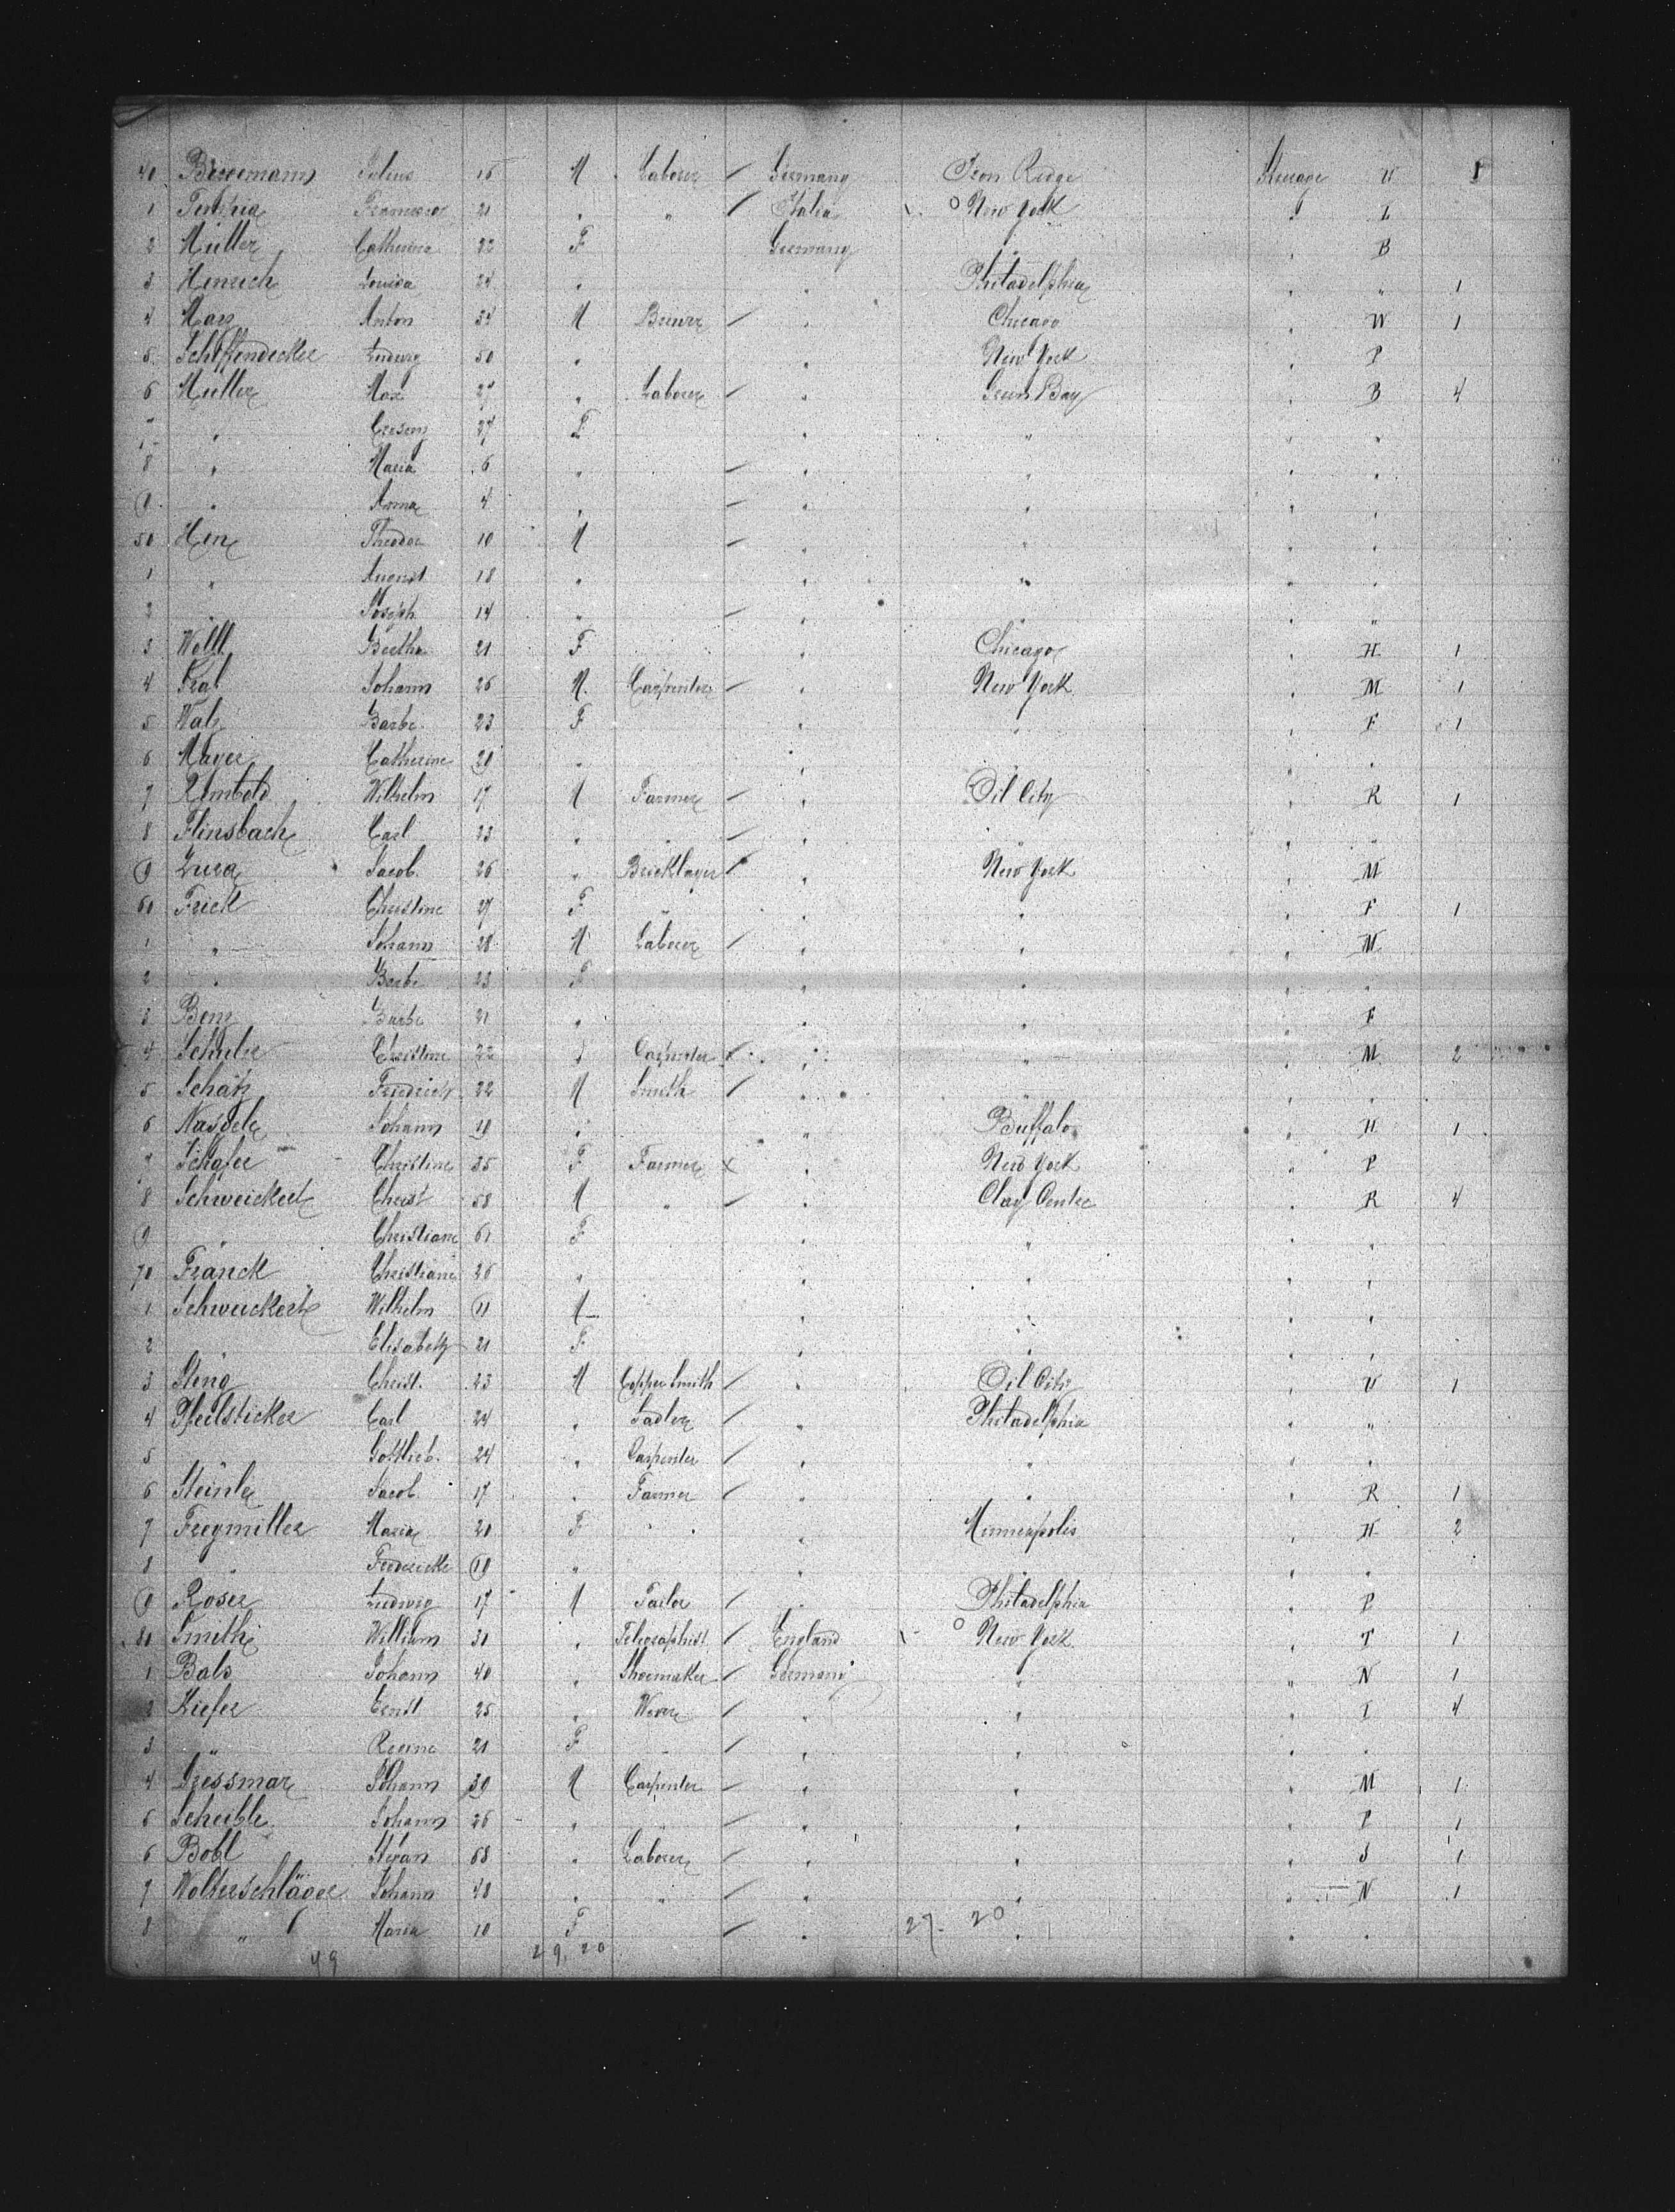 40 Julius 16 M Laborer / Germany Iron Ridge Steerage U 1
1 21 " " / Italia New York " L
2 Müller Catherina 22 F Germany " " B
3 Henrich Louisa 24 " " Philadelphia " " 1
4 Anton 34 M Brewer / " Chicago " W 1
5 Schiffendecker Ludwig 50 " " New York " P
6 Müller Max 27 " Laborer / " Green Bay " B 4
7 " 27 F " " " "
8 " Maria 6 " / " " " "
9 " Anna 4 " / " " " "
50 Theodor 10 M / " " " "
1 " August 18 " " " " "
2 " Joseph 14 " / " " " "
3 Wolll Bertha 21 F " Chicago " H 1
4 Johann 26 M Carpenter / " New York " M 1
5 Walz Barbe 23 F " " " F 1
6 Mayer Catherine 20 " " " " "
7 Wilhelm 17 M Farmer / " Oil City " R 1
8 Flinsbach Carl 23 " " / " " " "
9 Jacob 26 " Bricklayer / " New York " M
60 Frick Christine 27 F " " " " F 1
1 " Johann 28 M Laborer / " " " M
2 " Barbe 23 F " " " "
3 Benz Barbe 21 " " " " F
4 Christine 22 " Carpenter x " " M 2
5 Schätz Friedrich 22 M Smith / " " " "
6 Nasdele Johann 19 " " Buffalo " H 1
7 Schäfer Christine 35 F Farmer x " New York " P
8 Schweickert Christ 58 M " / " Clay Center " R 4
9 " Christiane 61 F " " " "
70 Franck Christiane 26 " " " " "
1 Schweickert Wilhelm 11 M " " " "
2 " Elisabeth 21 F " " " "
3 Christ. 23 M Coppersmith / " Oil City " U 1
4 Pfeilsticker Carl 24 " Sadler / " Philadelphia " "
5 " Gottlieb. 24 " Carpenter / " " " "
6 Steinle Jacob 17 " Farmer / " " " R 1
7 Freymiller Maria 20 F " Minneapolis " H 2
8 " Fredericke 19 " " " " "
9 Roser Ludwig 17 M Tailor / " Philadelphia " P
80 Smith William 31 " Telegraphist / England New York " T 1
1 Bals Johann 40 " Shoemaker / Germany " " N 1
2 Kiefer Ernst 25 " / " " " T 4
3 " Regine 21 F / " " " "
4 Gressmar Johann 30 M Carpenter / " " " M 1
5 Scheible Johann 26 " " / " " " P 1
6 Bobl Stefan 68 " Laborer / " " " S 1
7 Wolkerschläger Johann 48 " " / " " " N 1
8 " Maria 10 F / " " " "
49 29, 20 29- 20